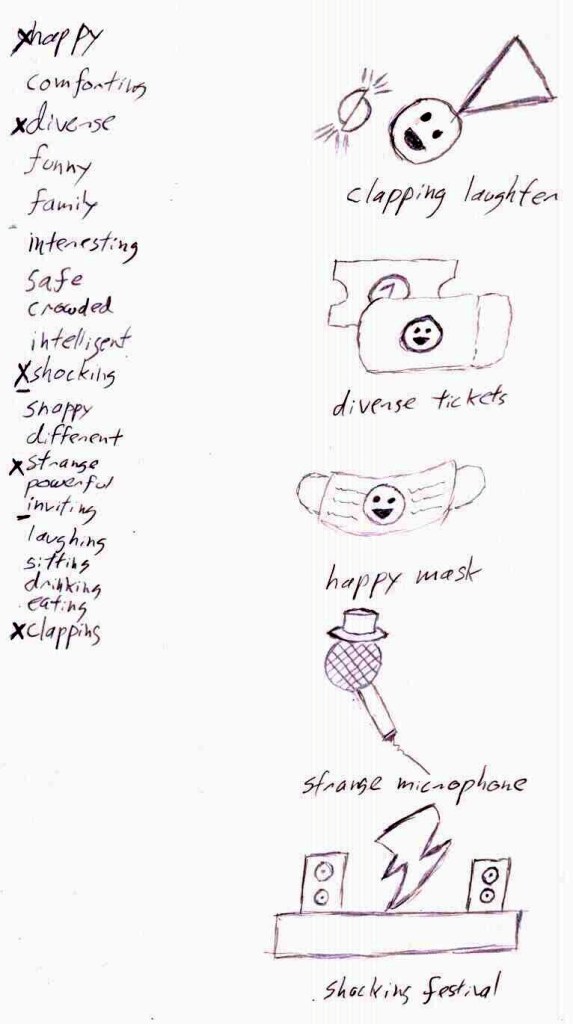 xhappy
comforting
xdiverse
funny
family
interesting
safe
crowded
intelligent
xshocking
snappy
different
xstrange
powerful
inviting
laughing
sitting
drinking
eating
xclapping
clapping laughter
diverse tickets
happy mask
strange microphone
shocking festival